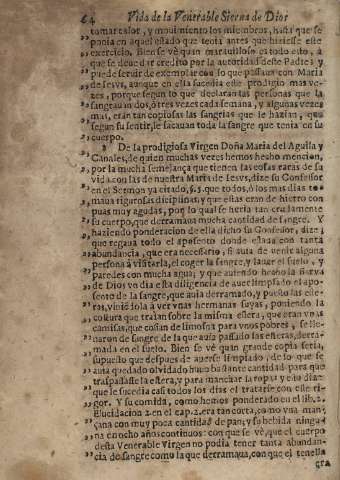 64 Vida de la Venerable Sierva de Dios
tomar calor, y movimiento los miembros, hasta que se
„ ponia en aquel estado que tenia antes que hiziesse este
„ exercicio. Bien se vè quan marauilloso es todo esto, à
„ que se deue dar credito por la autoridad deste Padre; y
puede seruir de exemplar con lo que passaua con Maria
„ de Iesvs, aunque en ella sucedia este prodigio mas ve-
„ zes, porque segun lo que declararan las personas que la
„ sangrauan dos, ò tres vezes cada semana, y algunas vezes
„ mas, eran tan copiosas las sangrias que le hazian, que
„ segun su sentir, le sacauan toda la sangre que tenia en su
„ cuerpo.
3 De la prodigiosa Virgen Doña Maria del Aguila y
„ Canales, de quien muchas vezes hemos hecho mencion,
„ por la mucha semejança que tienen las cosas raras de su
„ vida con las de nuestra Maria de Iesvs, dize su Confessor
„ en el Sermon ya citado, §.5. que todos, ò los mas dias to-
„ maua rigurosas disciplinas, y que estas eran de hierro con
„ puas muy agudas, por lo qual se heria tan cruelmente
„ su cuerpo, que derramaua mucha cantidad de sangre. Y
„ haziendo ponderacion de ella dicho su Confessor, dize;
„ que regaua todo el aposento donde estaua con tanta
„ abundancia, que era necessario, si auia de venir alguna
„ persona à visitarla, el coger la sangre, y lauar el suelo, y
„ paredes con mucha agua; y que auiendo hecho la sierva
„ de Dios vn dia esta diligencia de auer limpiado el apo-
„ sento de la sangre, que auia derramado, y puesto las este-
„ ras, vinieron à ver vnas hermanas suyas, poniendo la
„ costura que traian sobre la misma estera, que eran vnas
„ camisas, que cosian de limosna para vnos pobres, se lle-
„ naron de sangre de la que auia passado las esteras, derra-
„ mada en el suelo. Bien se vè quan grande copia seria,
„ supuesto que despues de auerse limpiado, de lo que se
„ auia quedado olvidado huuo bastante cantidad para que
„ traspassasse la estera, y para manchar la ropa; y esto dize
„ que le sucedia casi todos los dias el tratarse con este ri-
„ gor. Y su comida, como hemos ponderado en el lib. 2.
„ Elucidacion 2. en el cap. 2. era tan corta, como vna man-
„ çana con muy poca cantidad de pan; y su bebida ningu-
„ na en ocho años continuos: con que se vè, que el cuerpo
„ desta Venerable Virgen no podia tener tanta abundan-
„ cia de sangre como la que derramaua, con que el tenella
gra